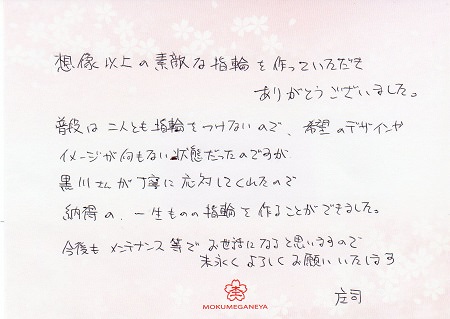 想像以上の素敵な指輪を作っていただき
ありがとうございました。
普段は二人とも指輪をつけないので、希望のデザインや
イメージが何もない状態だったのですが
黒川さんが丁寧に応対してくれたので
納得の、一生ものの指輪を作ることができました。
今後も メンテナンス等で お世話になると思いますので
末永く よろしく お願いいたします
庄司
MOKUMEGANEYA